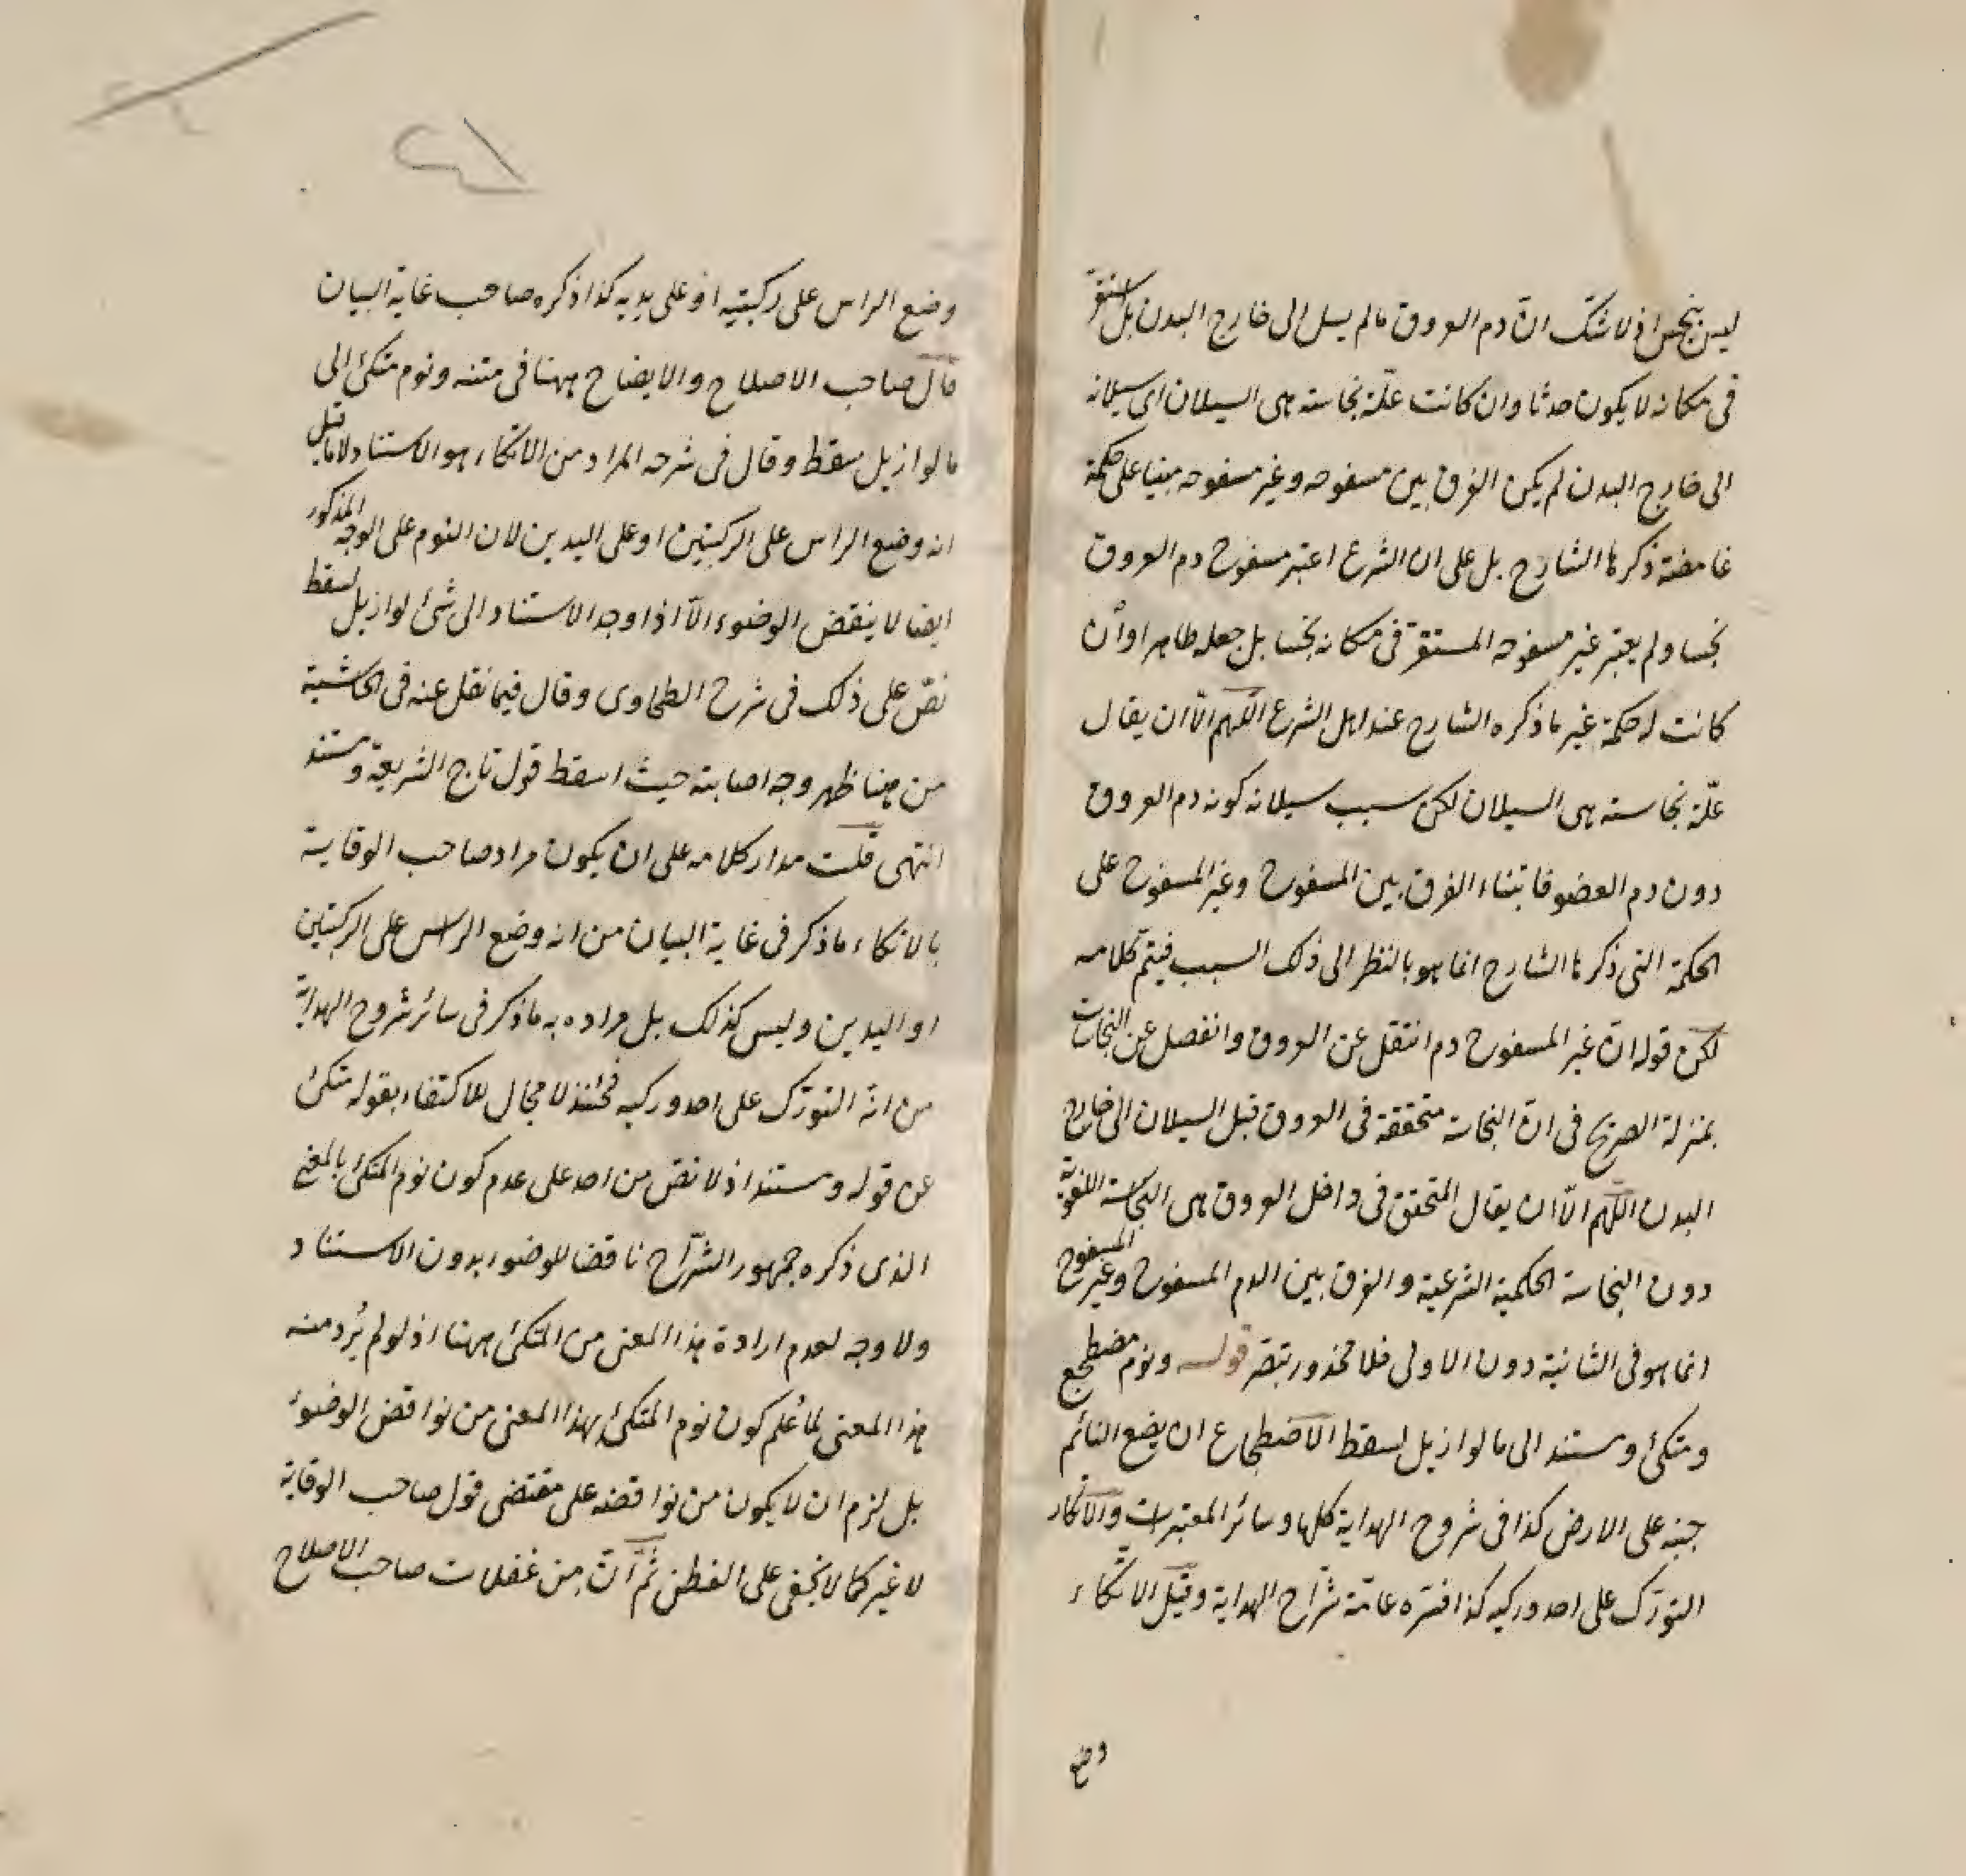 ليس بنجس اذ لا شك ان دم العروق مالم يسل الى خارج البدن بل استقر
فى مكانه لا يكون حدثا وان كانت علة نجاسته هى السيلان اى سيلانه
الى خارج البدن لم يكن الفرق بين مسفوحه وغير مسفوحه مبنيا على حكمة
غامضة ذكرها الشارح بل على ان الشرع اعتبر مسفوح دم العروق
نجسا ولم يعتبر غير مسفوحه المستقر فى مكانه نجسا بل جعله طاهرا وان
كانت له حكمة غير ما ذكره الشارح عند اهل الشرع اللهم الا ان يقال
علة نجاسته هى السيلان لكن سبب سيلانه كونه دم العروق
دون دم العضو فابتناء الفرق بين المسفوح وغير المسفوح على
الحكمة التى ذكرها الشارح انما هو بالنظر الى ذلك السبب فيتم كلامه
لكن قوله ان غير المسفوح دم انتقل عن العروق وانفصل عن النجاسات
بمنزلة الصريح فى ان النجاسة متحققة فى العروق قبل السيلان الى خارج
البدن اللهم الا ان يقال المتحقق فى داخل العروق هى النجاسة اللغوية
دون النجاسة الحكمية الشرعية والفرق بين الدم المسفوح وغير المسفوح
انما هو فى الثانية دون الاولى فلا محذور تبصر قوله ونوم مضطجع
ومتكئ ومستند الى ما لو ازيل لسقط الاضطجاع ان يضع النائم
جنبه على الارض كذا فى شروح الهداية كلها وسائر المعتبرات والاتكاء
التورّك على احد وركيه كذا فسّره عامّة شرّاح الهداية وقيل الاتكاء
وضع
وضع الراس على ركبتيه او على يديه كذا ذكره صاحب غاية البيان
قال صاحب الاصلاح والايضاح ههنا فى متنه ونوم متكئ الى
ما لو ازيل سقط وقال فى شرحه المراد من الاتكاء هو الاستناد لا ما قيل
انه وضع الراس على الركبتين او على اليدين لان النوم على الوجه المذكور
ايضا لا ينقض الوضوء الا اذا وجد الاستناد الى شئ لو ازيل لسقط
نصّ على ذلك فى شرح الطحاوى وقال فيما نقل عنه فى الحاشية
من هنا ظهر وجه اصابته حيث اسقط قول تاج الشريعة ومستند
انتهى قلت مدار كلامه على ان يكون مراد صاحب الوقاية
بالاتكاء ما ذكر فى غاية البيان من انه وضع الراس على الركبتين
او اليدين وليس كذلك بل مراده به ما ذكر فى سائر شروح الهداية
من انه التورّك على احد وركيه فحينئذ لا مجال للاكتفاء بقوله متكئ
عن قوله ومستند اذ لا نصّ من احد على عدم كون نوم المتكئ بالمعنى
الذى ذكره جمهور الشرّاح ناقضا للوضوء بدون الاستناد
ولا وجه لعدم ارادة هذا المعنى من المتكئ ههنا اذ لو لم يُرد منه
هذا المعنى لما عُلم كون نوم المتكئ بهذا المعنى من نواقض الوضوء
بل لزم ان لا يكون من نواقضه على مقتضى قول صاحب الوقاية
لا غير كما لا يخفى على الفطن ثم ان من غفلات صاحب الاصلاح